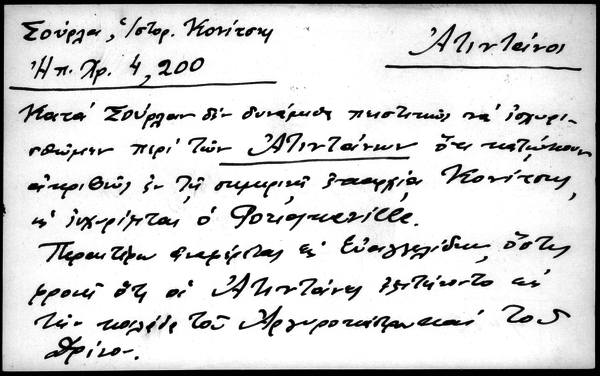 Σούρλα, Ἱστορ. Κονίτσης
Ἠπ. Χρ. 4, 200
Ἀτιντᾶνοι
Κατά Σούρλαν δέν δυνάμεθα πειστικῶς νά ἰσχυρι-
σθῶμεν περί τῶν Ἀτιντάνων ὅτι κατῴκουν
ἀκριβῶς ἐν τῇ σημερινῇ ἐπαρχίᾳ Κονίτσης,
ὡς ἰσχυρίζεται ὁ Pouqueville.
Περαιτέρω ἀναφέρεται εἰς Εὐαγγελίδην, ὅστις
φρονεῖ ὅτι οἱ Ἀτιντᾶνες ἐξετείνοντο εἰς
τήν κοιλάδα τοῦ Ἀργυροκάστρου καί τοῦ
Δρίνου.